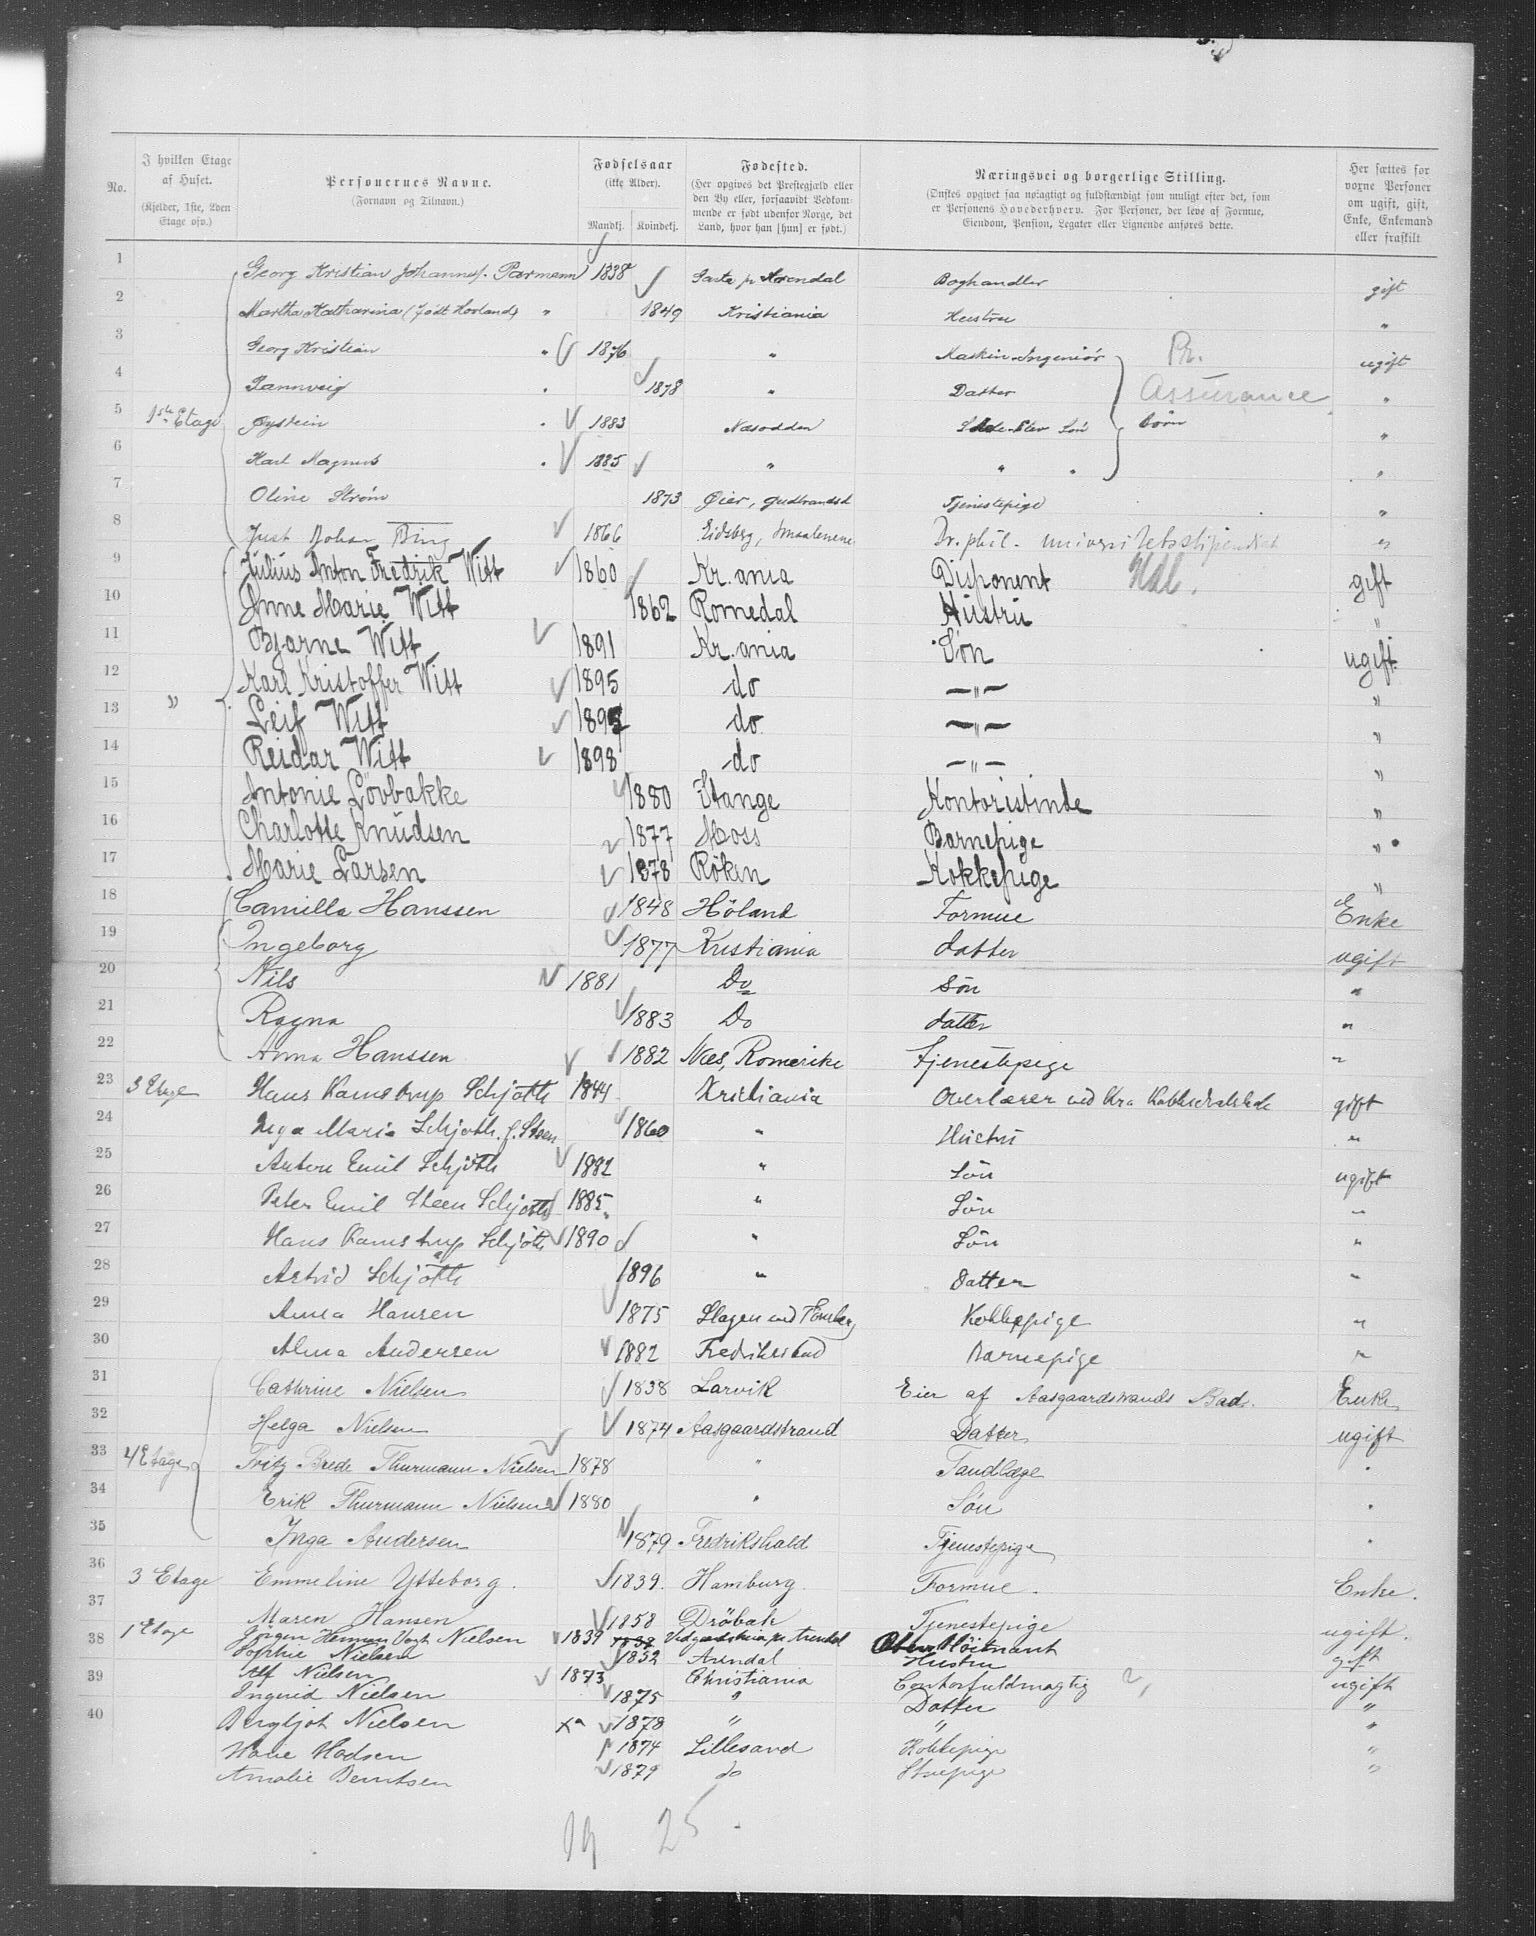 No. | I hvilken Etage af Huset. (Kjelder, 1ste, 2den Etage osv.) | Personernes Navne. (Fornavn og Tilnavn.) | Fødselsaar (ikke Alder). Mandkj. Kvindekj. | Fødested. (Her opgives det Prestegjæld eller den By eller, forsaavidt Vedkommende er født udenfor Norge, det Land, hvor han [hun] er født.) | Næringsvei og borgerlige Stilling. (Ønskes opgivet saa nøiagtigt og fuldstændigt som muligt efter det, som er Personens Hovederhverv. For Personer, der leve af Formue, Eiendom, Pension, Legater eller Lignende anføres dette. | Her sættes for voxne Personer om ugift, gift, Enke, Enkemand eller fraskilt
1 Georg Kristian Johannes Parmann 1838 Arendal Boghandler gift
2 Martha Katharina (født Hovland) " 1849 Kristiania Hustru "
3 Georg Kristian " 1876 " Maskin-Ingeniør Pr. ugift
4 Rannveig " 1878 " Datter Assurance "
5 1ste Etage Øystein " 1883 Næsodden Elev Søn børn "
6 Karl Magnus " 1885 " " " "
7 Oline Strøm 1873 Øier, Gudbrandsd Tjenestepige "
8 Just Johan Bing 1866 Eidsberg, Smaalenene Dr. phil. universitetsstipendiat "
9 Julius Anton Fredrik Witt 1860 Kr.ania Disponent Hdl. gift
10 Anne Marie Witt 1862 Romedal Hustru "
11 Bjarne Witt 1891 Kr.ania Søn ugift
12 Karl Kristoffer Witt 1895 do —"— "
13 " Leif Witt 1897 do. —"— "
14 Reidar Witt 1898 do —"— "
15 Antonie Lövbakke 1880 Stange Kontoristinde "
16 Charlotte Knudsen 1877 Moss Barnepige "
17 Marie Larsen 1878 Röken Kokkepige "
18 Camilla Hanssen 1848 Höland Formue Enke
19 Ingeborg 1877 Kristiania datter ugift
20 Nils 1881 Do Sön "
21 Ragna 1883 Do datter "
22 Anna Hanssen 1882 Næs, Romerike tjenestepige "
23 3 Etage Hans Kamstrup Schjøth 1844 Kristiania Overlærer ved Kra gift
24 Inga Marie Schjøth f. Steen 1860 " Hustru "
25 Anton Emil Schjøth 1882 " Søn ugift
26 Peter Emil Steen Schjøth 1885 " Søn "
27 Hans Kamstrup Schjøth 1890 " Søn "
28 Astrid Schjøth 1896 " Datter "
29 Anna Hansen 1875 Slagen ved Tønsberg Kokkepige "
30 Alma Andersen 1882 Fredrikstad Barnepige "
31 Cathrine Nielsen 1838 Larvik Eier af Aasgaardstrands Bad. Enke
32 Helga Nielsen 1874 Aasgaardstrand Datter ugift
33 4 Etage Fritz Brede Thurmann Nielsen 1878 " Tandlæge "
34 Erik Thurmann Nielsen 1880 " Søn "
35 Inga Andersen 1879 Fredrikshald Tjenestepige "
36 3 Etage Emmeline Ytteborg. 1839. Hamburg. Formue. Enke.
37 Maren Hansen 1858 Dröbak Tjenestepige ugift.
1 Etage Jörgen Herman Vogt Nielsen 1839 Arendal
38 Sophie Nielsen 1852 Arendal Hustru gift
Alf Nielsen 1873 Christiania Contorfuldmægtig ugift
39 Ingrid Nielsen 1875 " Datter "
40 Bergljot Nielsen 1878 " " "
Hansen 1874 Lillesand Kokkepige "
Amalie Berntsen 1879 do Stuepige "
19 25.